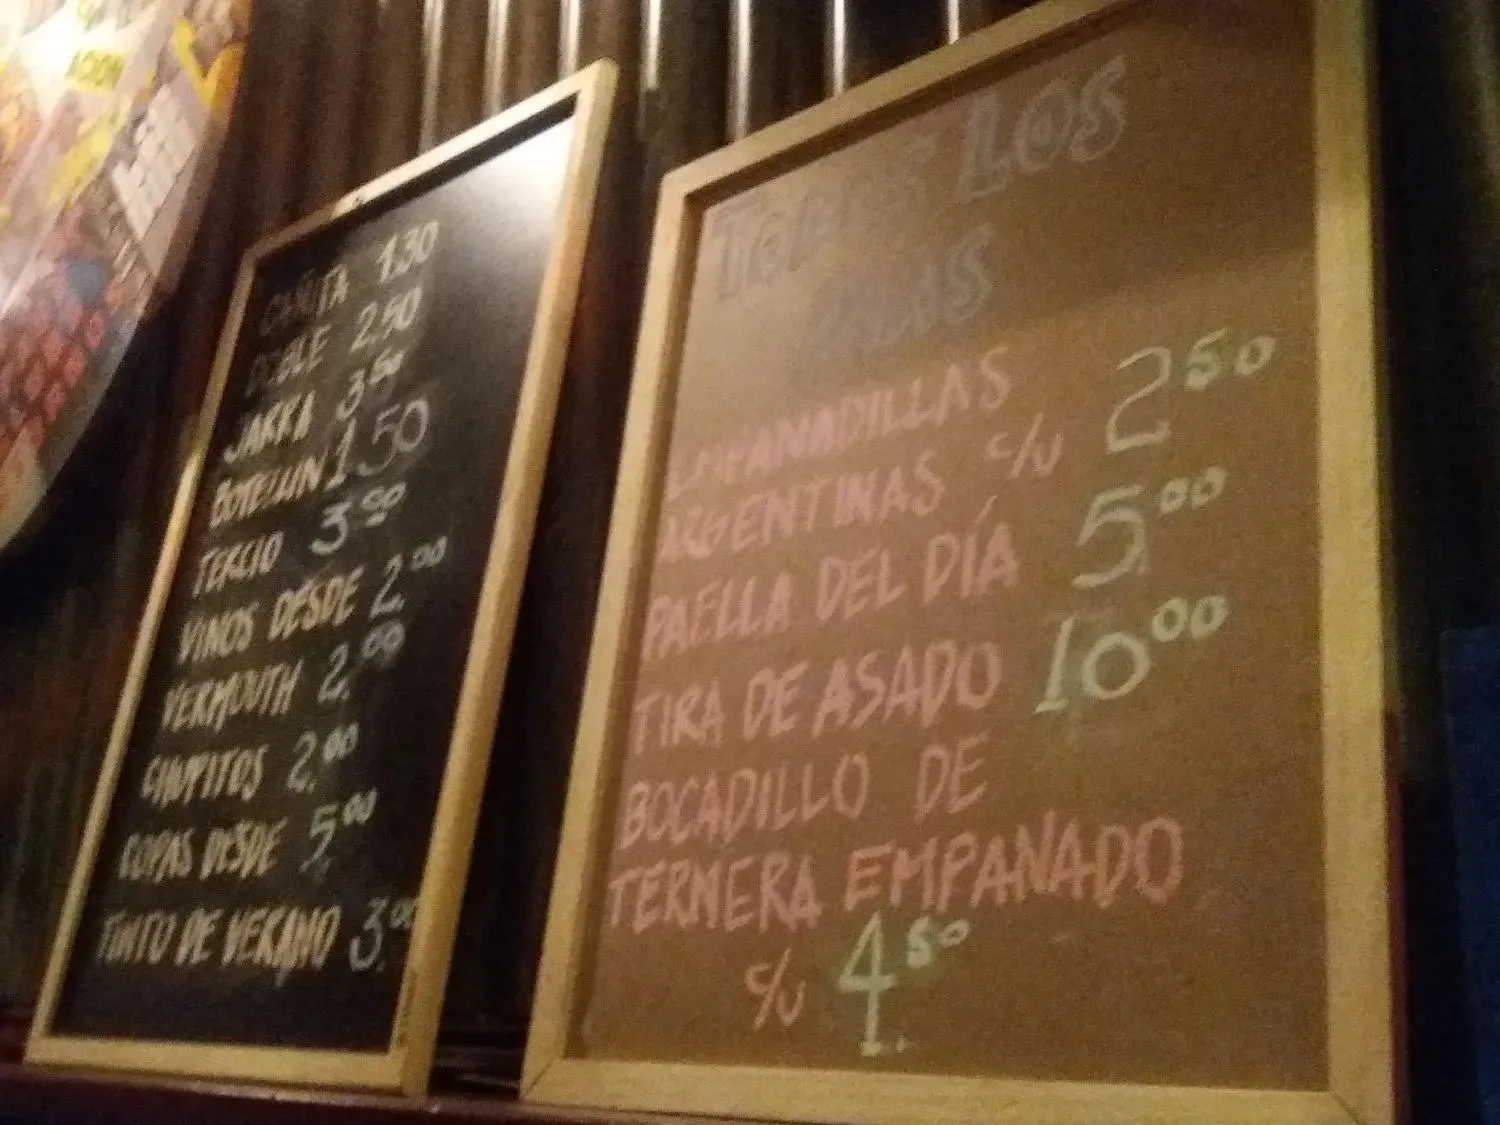 CAÑITA 1.30
DOBLE 2.50
JARRA 3.50
BOTELLIN 1.50
TERCIO 3.00
VINOS DESDE 2.00
VERMOUTH 2.00
CHUPITOS 2.00
COPAS DESDE 5.00
TINTO DE VERANO 3.00
TODOS LOS
DIAS
EMPANADILLAS
ARGENTINAS c/u 2.50
PAELLA DEL DÍA 5.00
TIRA DE ASADO 10.00
BOCADILLO DE
TERNERA EMPANADO
c/u 4.50